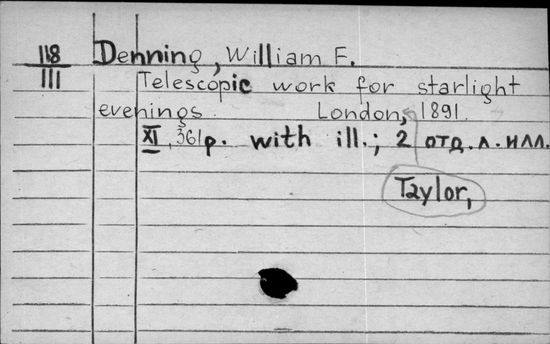 118 Denning, William F.
III Telescopic work for starlight
evenings. London, 1891.
XI, 361p. with ill.; 2 отд. л. илл.
Taylor,